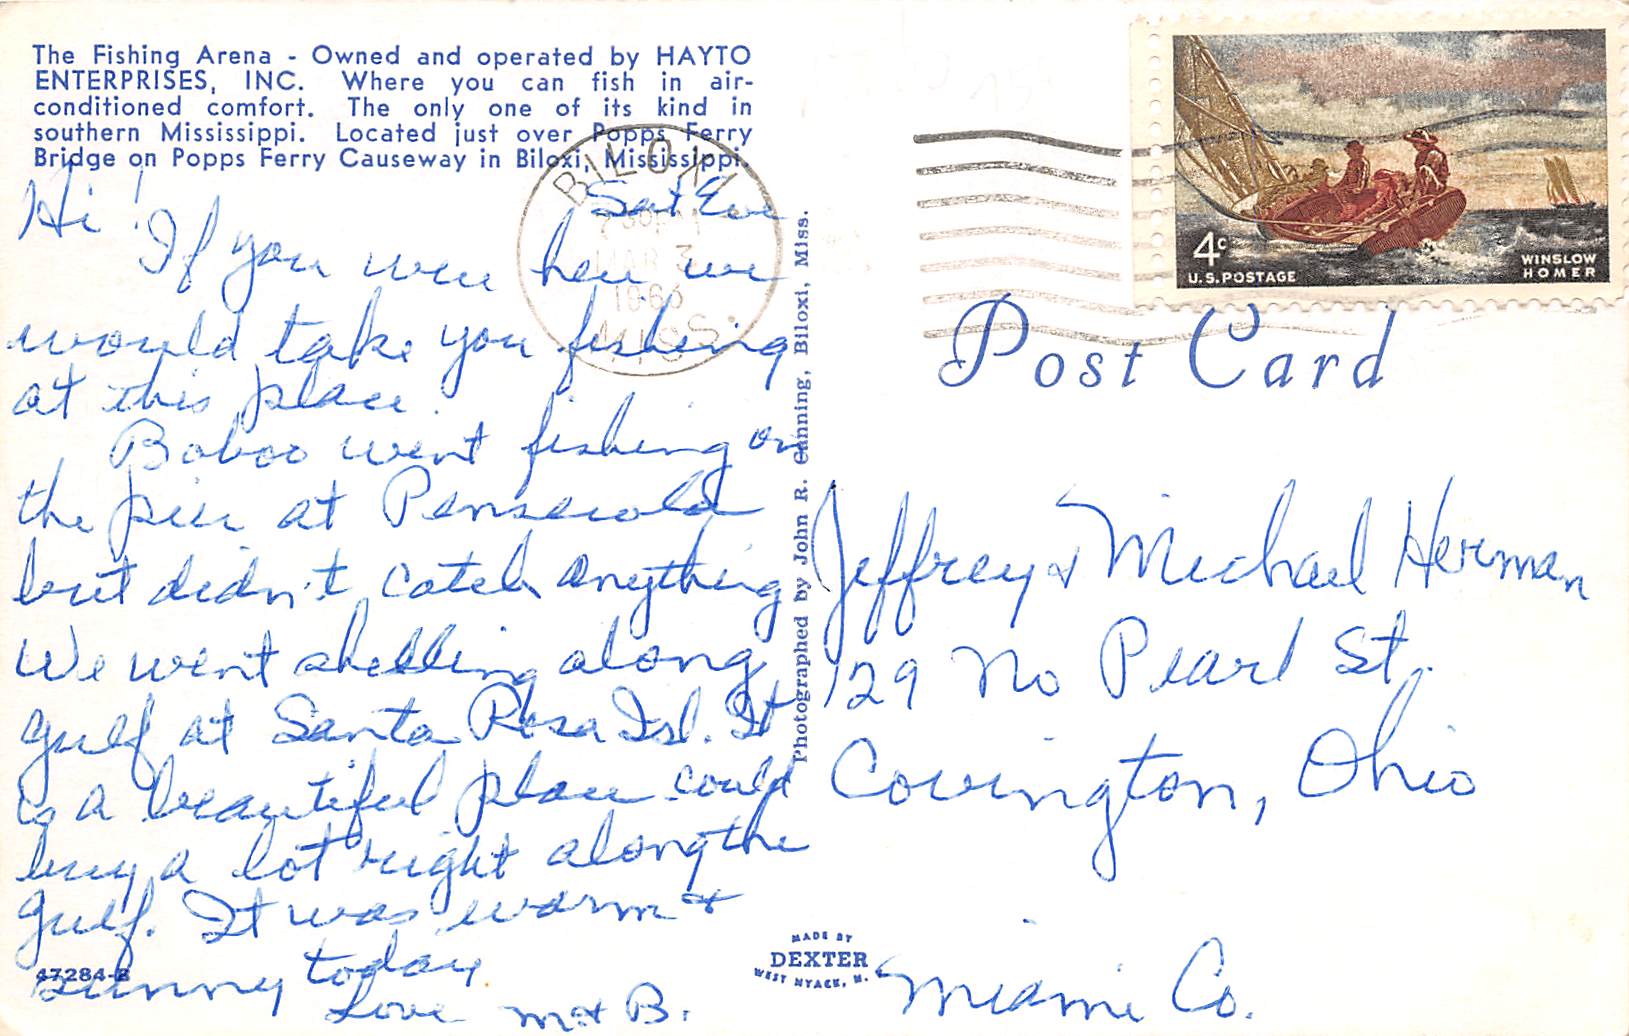 The Fishing Arena - Owned and operated by HAYTO
ENTERPRISES, INC. Where you can fish in air-
conditioned comfort. The only one of its kind in
southern Mississippi. Located just over Popps Ferry
Bridge on Popps Ferry Causeway in Biloxi, Mississippi.
Sat Eve
Hi!
If you were here we
would take you fishing
at this place.
Boboo went fishing on
the pier at Pensacola
but didn't catch anything
We went shelling along
gulf at Santa Rosa Isl. It
is a beautiful place could
buy a lot right along the
gulf. It was warm +
sunny today.
Love M + B.
47284-B
BILOXI
MAR 3
1963
MISS.
Photographed by John R. Canning, Biloxi, Miss.
MADE BY
DEXTER
WEST NYACK, N.
4c
U.S. POSTAGE
WINSLOW
HOMER
Post Card
Jeffrey & Michael Herman
129 No Pearl St.
Covington, Ohio
Miami Co.